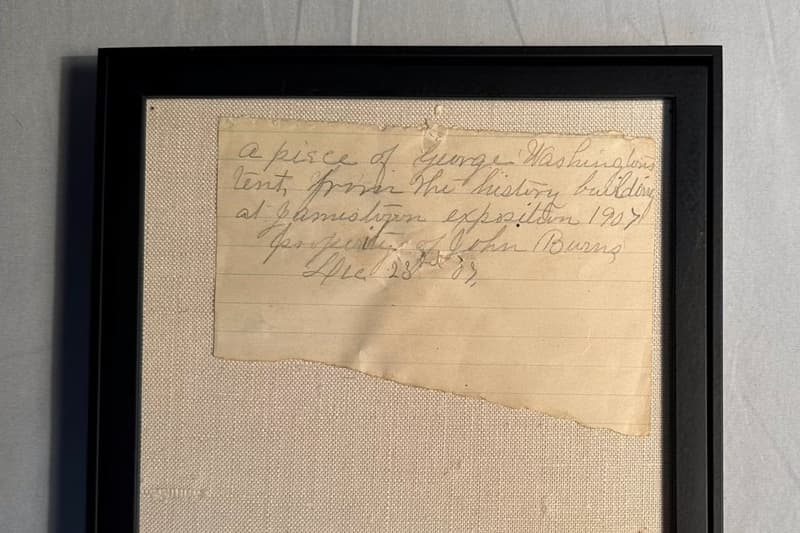 a piece of George Washingtons
tent, from the history building
at Jamestown exposition 1907
property of John Burns
Dec 23rd